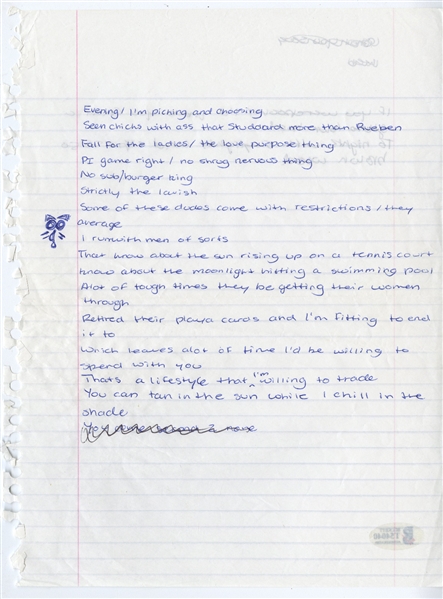 Evening/ I'm picking and choosing
Seen chicks with ass that Studdard more than Rueben
Fall for the ladies/ the love purpose thing
PI game right/ no shrug nervous thing
No sub/burger king
Strictly the lavish
Some of these dudes come with restrictions/they
average
I run with men of sorts
That know about the sun rising up on a tennis court
know about the moonlight hitting a swimming pool
Alot of tough times they be getting their women
through
Retired their playa cards and I'm fitting to end
it to
Which leaves alot of time I'd be willing to
spend with you
Thats a lifestyle that I'm willing to trade
You can tan in the sun while I chill in the
shade